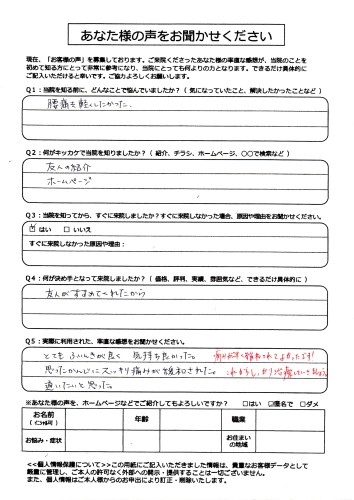 あなた様の声をお聞かせください
現在、「お客様の声」を募集しております。ご来院くださったあなた様の率直な感想が、当院のことを
初めて知る方にとって非常に参考になり、当院にとっても何よりの力となります。できるだけ具体的に
ご記入いただけると幸いです。ご協力よろしくお願いします。
Q1:当院を知る前に、どんなことで悩んでいましたか?(気になっていたこと、解決したかったことなど)
腰痛を軽くしたかった。
Q2:何がキッカケで当院を知りましたか?(紹介、チラシ、ホームページ、〇〇で検索など)
友人の紹介
ホームページ
Q3:当院を知ってから、すぐに来院しましたか?すぐに来院しなかった場合、原因や理由をお聞かせください。
☑はい □いいえ
すぐに来院しなかった原因や理由:
Q4:何が決め手となって来院しましたか?(価格、評判、実績、雰囲気など、できるだけ具体的に)
友人がすすめてくれたから
Q5:実際に利用された、率直な感想をお聞かせください。
とても ふいんきが良く 気持ち良かった。
思ったかんじにスッキリ痛みが緩和された。
通いたいと思った。
※あなた様の声を、ホームページなどでご紹介してもよろしいですか? □はい □匿名で □ダメ
お名前
(イニシャル可)
年齢
職業
お悩み・症状
お住まい
の地域
<<個人情報保護について>>この用紙にご記入いただきました情報は、貴重なお客様データとして
厳重に管理し、ご本人の許可なく外部への開示・提供することは一切ございません。
また、個人情報はご本人様からのお申出により訂正・削除いたします。